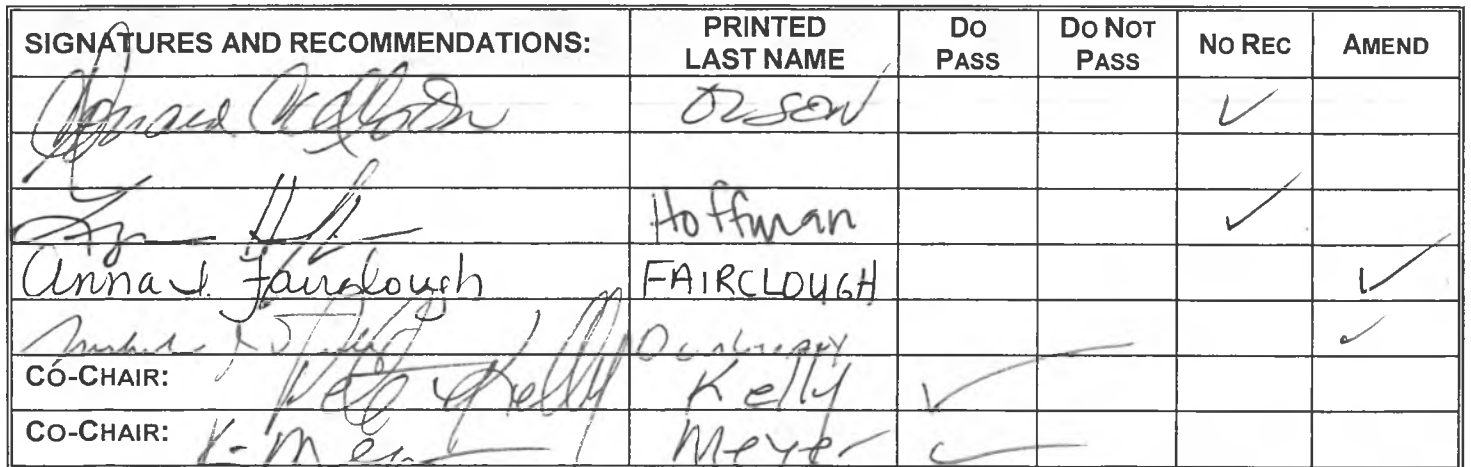 SIGNATURES AND RECOMMENDATIONS: PRINTED LAST NAME DO PASS DO NOT PASS NO REC AMEND
OLSON ✓
Hoffman ✓
Anna I. Fairclough FAIRCLOUGH ✓
✓
CO-CHAIR: Pete Kelly Kelly ✓
CO-CHAIR: K- Meyer ✓